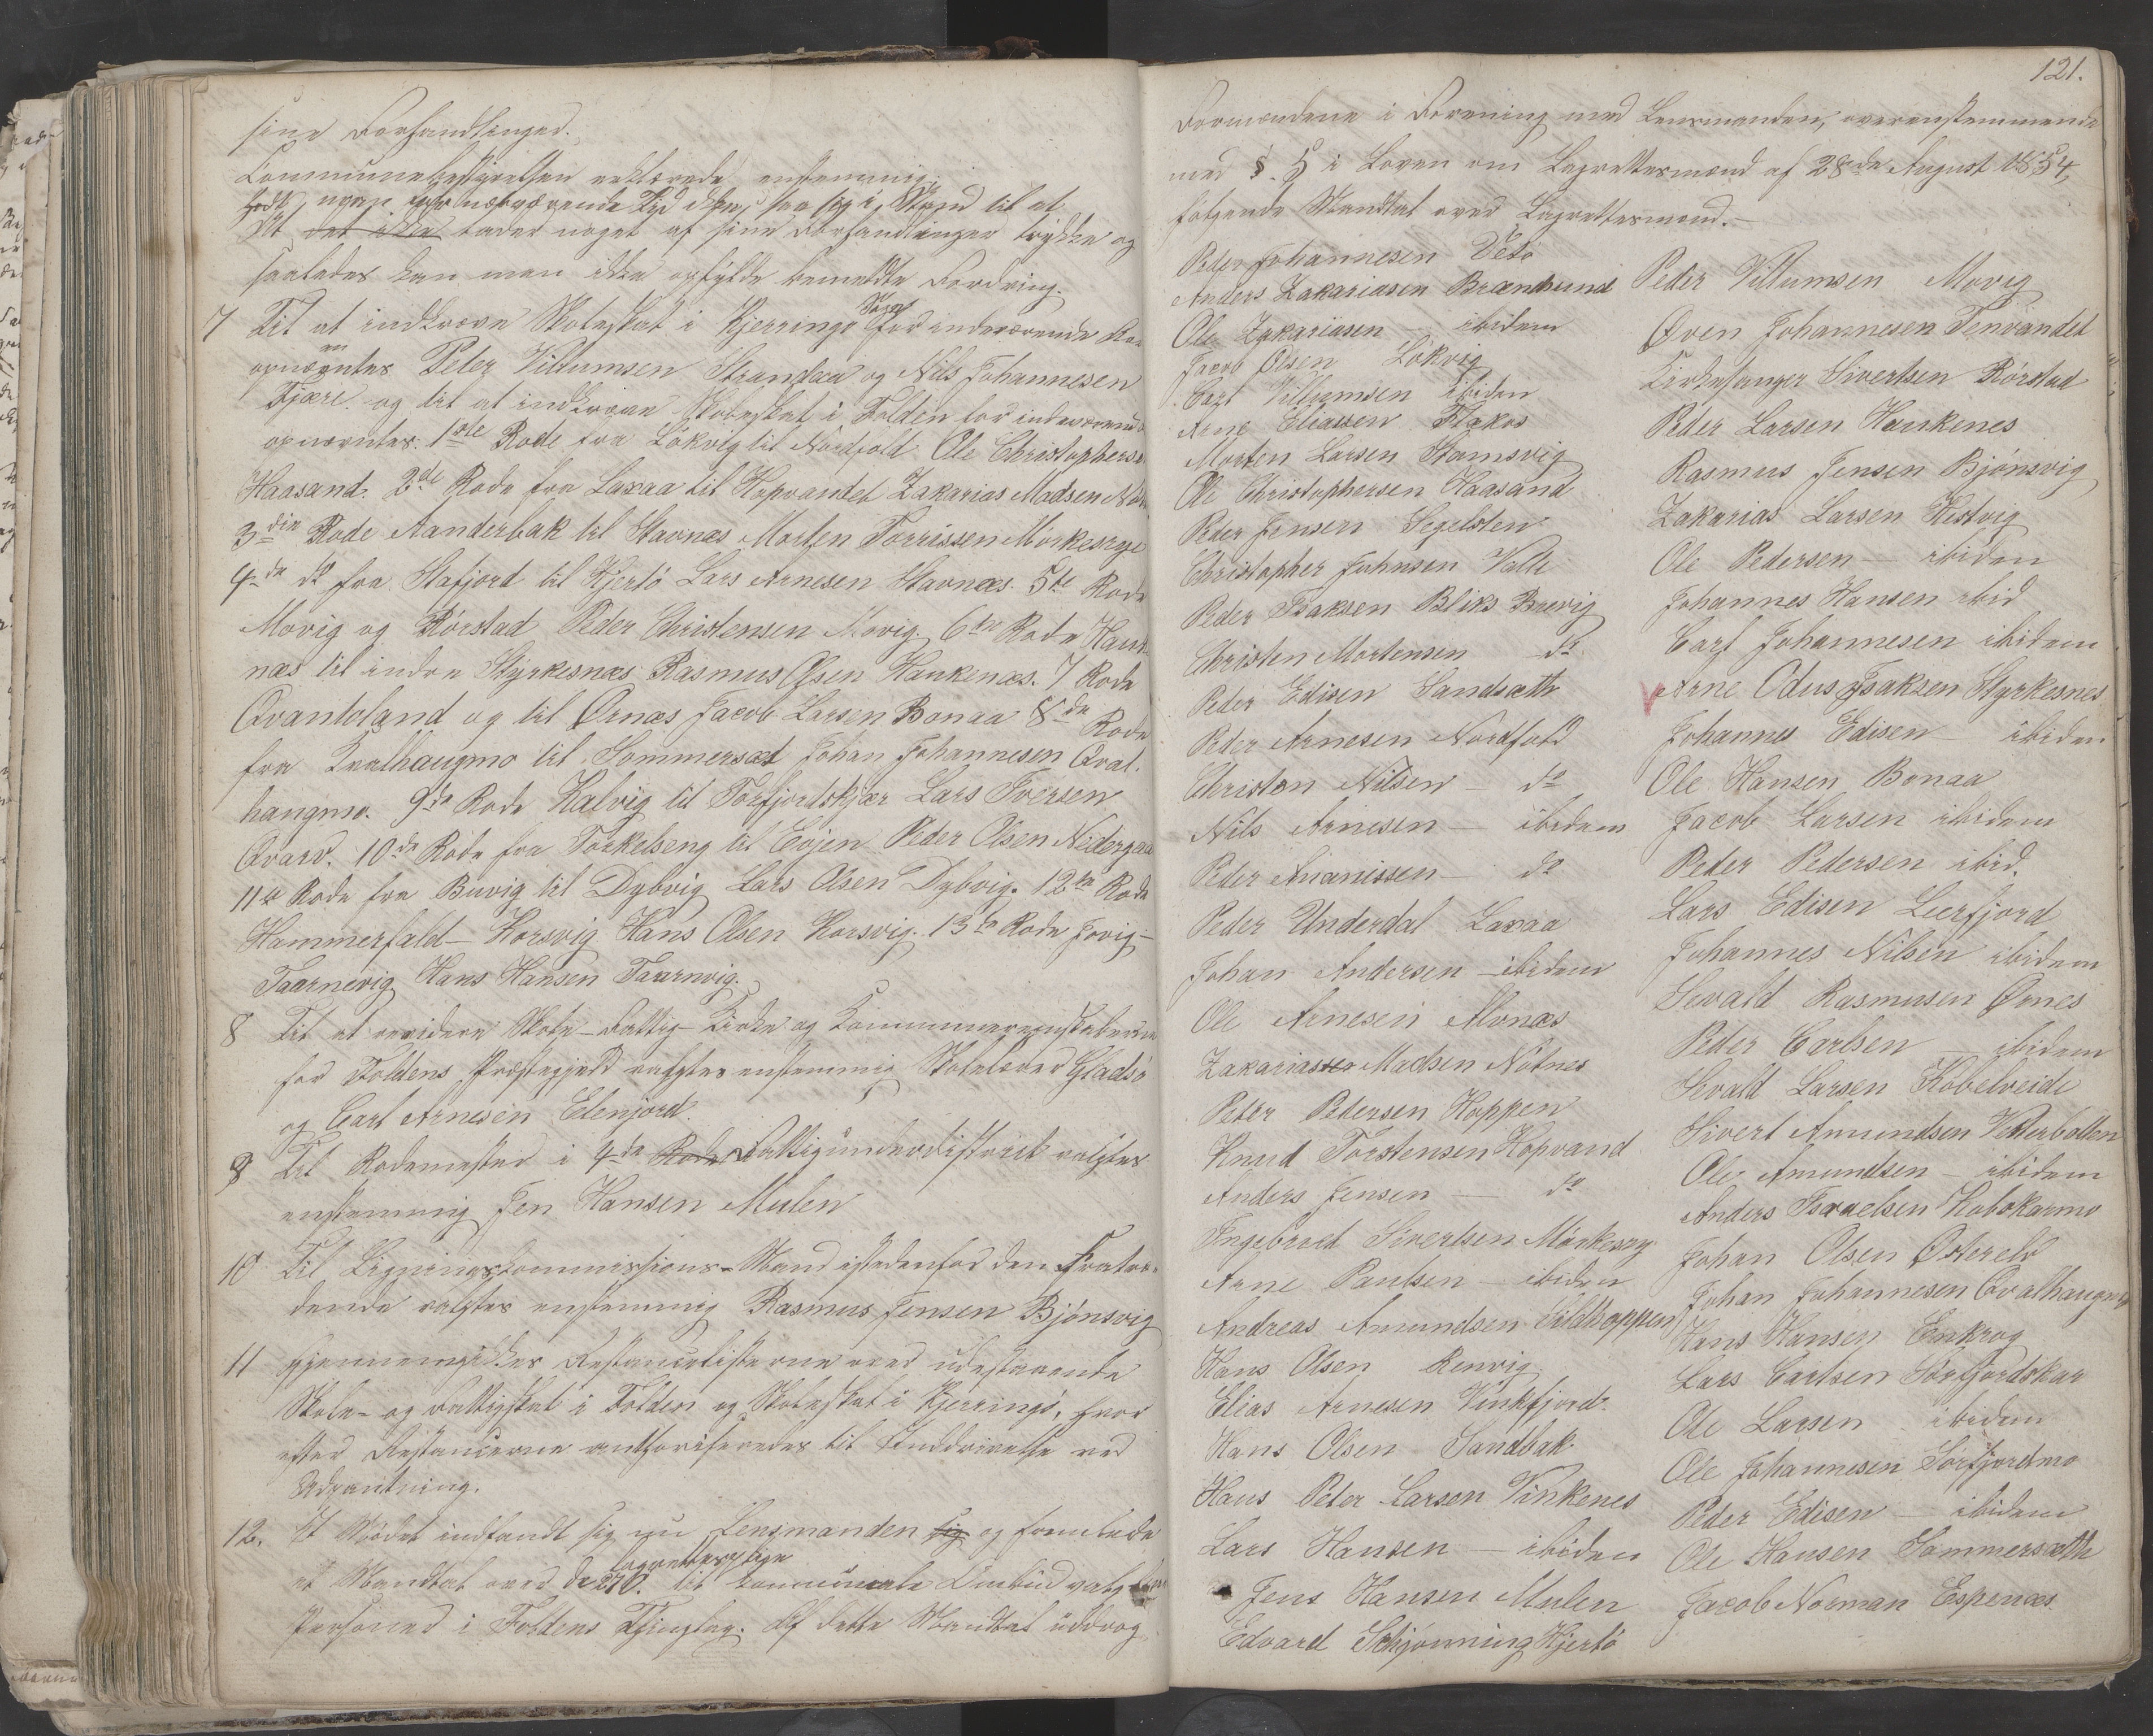 sine Forhandlinger.
Communebestyrelsen erklærede enstemmig,
nærværende Tid ikke, saa sig i Stand til at
At det ikke lader noget af sine Forhandlinger trykke og
saaledes kan man ikke opfylde bemeldte Fordring.
7 Til at indkræve Skoleskat i Kjerringø Sogn for indeværende Aar
opnævntes Peter Villumsen Strandaa og Nils Johannesen
Fjære. og til at indkræve Skoleskat i Folden for indeværende
opnævntes: 1ste Rode fra Løkvig til Nordfold Ole Christophersen
Haasand. 2de Rode fra Laxaa til Hopvandet Zakarias Madsen
3die Rode Aanderbak til Stavnæs Morten Torrissen Mørkesvig
4de do fra Stafjord til Hjertø Lars Arnesen Stavnæs. 5te Rode
Movig og Rørstad Peder Christensen Movig. 6te Rode Hauk
næs til indre Styrkesnæs Rasmus Olsen Haukenæs. 7 Rode
Qvantoland og til Ørnæs Jacob Larsen Bonaa 8de Rode
fra Kvalhaugmo til Sommersæt Johan Johannesen Qval.
haugmo. 9de Rode Kalvig til Tørfjordskjær Lars Iversen
Qvarv. 10de Rode fra Torkelseng til Eøjen Peder Olsen Nedergaa
11te Rode fra Buvig til Dybvig Lars Olsen Dybvig. 12te Rode
Hammerfald – Korsvig Hans Olsen Korsvig. 13de Rode Jovig –
Taarnevig Hans Hansen Taarnvig.
8 Til at revidere Skole – Fattig – Kirke og Kommuneregnskaberne
for Foldens Præstegjeld valgtes enstemmig Skolelærer Gladsø
og Carl Arnesen Elenjord.
9 Til Rodemester i 4de Rode Fattigunderdistrikt valgtes
enstemmig Jen Hansen Mulen
10 Til Ligningskommissions-Mand istedenfor den Fratræ-
dende valgtes enstemmig Rasmus Jensen Bjønsvig
11 Gjennemgikkes Restancelisterne over udestaaende
Skole- og Fattigskat i Folden og Skoleskat i Kjerringø, hvor
efter Restancerne authoriseredes til Inddrivelse ved
Udpantning.
12. I Mødet indfandt sig nu Lensmanden sig og fremlagde
et Mandtal over de 270. til kommunale Ombud valgbare
Personer i Foldens Thinglag. Af dette Mandtal uddrog
121.
Formændene i Forening med Lensmanden, overensstemmende
med § 5 i Loven om Lagrettesmænd af 28de August 1854,
følgende Mandtal over Lagrettesmænd. –
Peder Johannesen Vetø
Anders Zakariasen Brændsund
Ole Zakariasen – ibidem
Jacob Olsen Løkvig
Carl Villumsen ibidem
Arne Eliassen Flakos
Morten Larsen Stamsvig
Ole Christophersen Haasand
Peder Jensen Segelsten
Christopher Johnsen Valle
Peder Isaksen Bliks Brevig
Christen Mortensen do
Peder Edisen Sandsæth
Peder Arnesen Nordfold
Christen Nilsen – do
Nils Arnesen – ibidem
Peder Ananissen – do
Peder Underdal Laxaa
Johan Andersen – ibidem
Ole Arnesen Alvnæs
Zakarias Madsen Nøtnes
Peter Pedersen Hoppen
Knud Torstensen Hopvand
Anders Jensen – do
Ingebrict Sivertsen Mørkesvig
Arne Paulsen – ibidem
Andreas Amundsen Vildhoppen
Hans Olsen Renvig
Elias Arnesen Vinkfjord
Hans Olsen Sandbak
Hans Peter Larsen Vinkenes
Lars Hansen – ibidem
Jens Hansen Mulen
Edvard Schjønning Hjertø
Peder Villumsen Movig
Øven Johannesen Tenvandet
Kirkesanger Sivertsen Rørstad
Peder Larsen Haukenes
Rasmus Jensen Bjønsvig
Zakarias Larsen Hestvig
Ole Pedersen – ibidem
Johannes Hansen ibid
Carl Johannesen ibidem
Arne Odus Isaksen Styrkesnes
Johannes Edisen – ibidem
Ole Hansen Bonaa
Jacob Larsen ibidem
Peder Pedersen ibid.
Lars Edisen Leerfjord
Johannes Nilsen ibidem
Sevald Rasmusen Ørnes
Peder Carlsen – ibidem
Sevald Larsen Kobelveide
Sivert Amundsen Vetterbotten
Ole Amundsen – ibidem
Anders Israelsen Kobokarmo
Johan Olsen Østerelv
Johan Johannesen Qvalhaugmo
Hans Hansen Enkrog
Lars Carlsen Sørfjordskar
Ole Larsen ibidem
Ole Johannesen Sørfjordmo
Peder Edisen – ibidem
Ole Hansen Sommersæth
Jacob Norman Espenæs